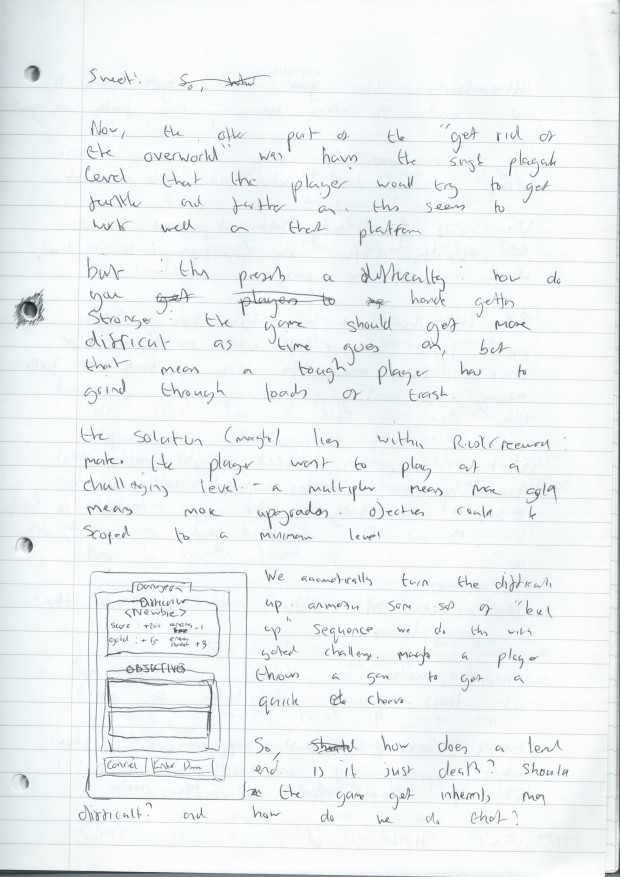 Sweet! So,
Now, the other part of the "get rid of
the overworld" was having the single playable
level that the player would try to get
further and further on. this seems to
work well on that platform
but this presents a difficulty: how do
you get players to handle getting
stronger: the game should get more
difficult as time goes on, but
that means a tough player has to
grind through loads of trash.
the solution (maybe) lies within Risk/reward:
make the player want to play at a
challenging level - a multiplier means more gold
means more upgrades. objectives could be
scoped to a minimum level
Dungeon
Difficulty
<Newbie>
OBJECTIVES
Cancel
We automatically turn the difficulty
up
up" sequence we do this with
gated challenge. maybe a player
throws a game to get a
quick cheevo.
So, should how does a level
end is it just death? Should
the game get inherently more
difficult? and how do we do that?